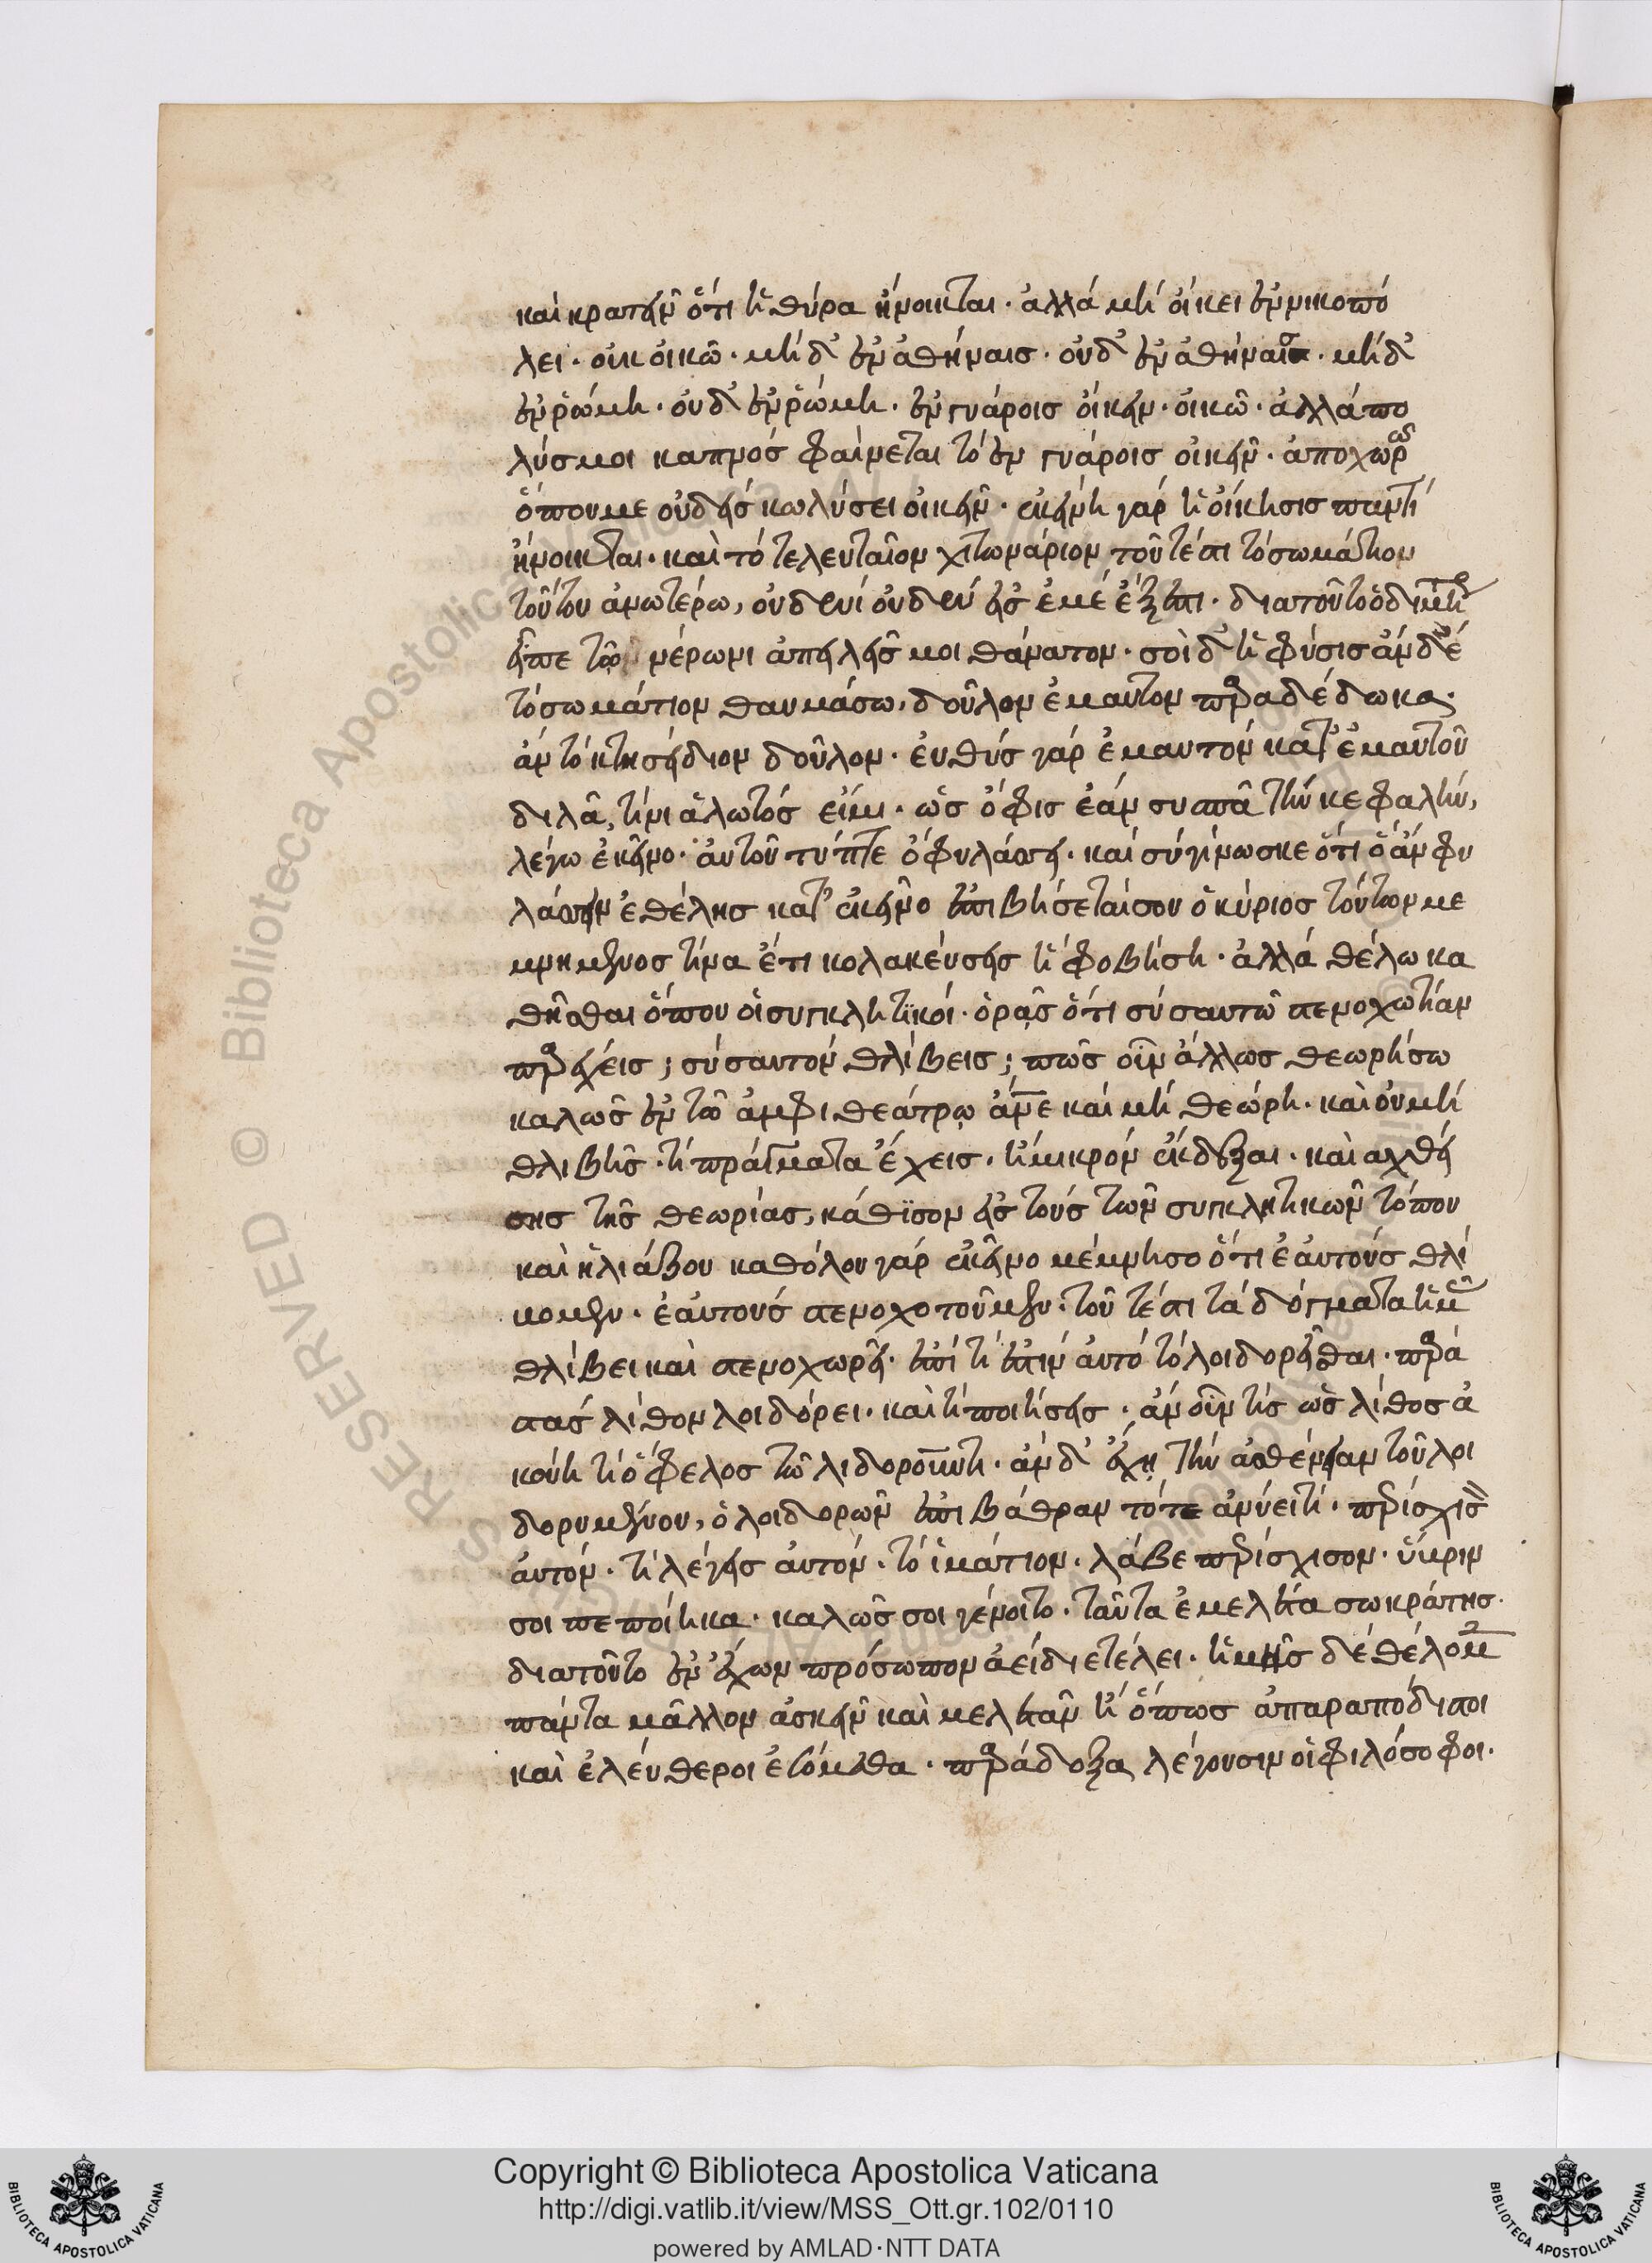 καὶ κρατεῖν ὅτι ἡ θύρα ἤνοικται· ἀλλὰ μὴ οἴκει ἐν νικοπό
λει· οὐκ οἰκῶ· μὴ δ' ἐν ἀθήναις· οὐδ' ἐν ἀθήναις· μὴ δ'
ἐν ῥώμη· οὐδ' ἐν ῥώμη· ἐν γυάροις οἴκειν· οἰκῶ· ἀλλὰ πο
λύς μοι καπνός φαίνεται τὸ ἐν γυάροις οἰκεῖν· ἀποχωρῶ
ὅπου με οὐδείς κωλύσει οἰκεῖν· ἐκείνη γάρ ἡ οἴκησις παντί
ἤνοικται· καὶ τὸ τελευταῖον χιτωνάριον τοῦτέστι τὸ σωμάτιον
τοῦτου ἀνωτέρω, οὐδενί οὐδέν εἰς ἐμέ ἔξεστι· διατοῦτο ὁ δημήτρ
εἶπε τῶ νέρωνι ἀπειλεῖς μοι θάνατον· σοὶ δ' ἡ φύσις ἀν δ' ἐ
τὸ σωμάτιον θαυμάσω, δοῦλον ἐμαυτον παραδέδωκα·
ἀν τὸ κτησείδιον δοῦλον· ἐυθύς γάρ ἐμαυτόν κατ' ἐμαυτοῦ
δηλῶ, τίνι ἁλωτός εἰμι· ὡς ὄφις ἐάν συσπᾶ τὴν κεφαλήν,
λέγω ἐκεῖνο· ἀυτοῦ τύπτε ὁ φυλάσσει· καὶ σύ γίνωσκε ὅτι ὁ ἀν φυ
λάσσειν ἐθέλης κατ' ἐκεῖνο ἐπιβήσεταί σου ὁ κύριος τούτων με
μνημένος τίνα ἔτι κολακεύσεις ἢ φοβήση· ἀλλὰ θέλω κα
θῆσθαι ὅπου οἱ συγκλητικοί· ὁρᾷς ὅτι σύ σαυτῶ στενοχωρίαν
παρέχεις; σύ σαυτόν θλίβεις; πῶς οὖν ἄλλως θεωρήσω
καλῶς ἐν τῶ ἀμφιθεάτρῳ ἄν̅ε καὶ μὴ θεώρη· καὶ οὐ μὴ
θλιβῆς· τί πράγματα ἔχεις· ἢ μικρόν ἔκδεξαι· καὶ αχθεί
σης τῆς θεωρίας, κάθϊσον εἰς τοὺς τῶν συγκλητικῶν τόπου
καὶ ἡλιάζου καθόλου γάρ ἐκεῖνο μέμνησο ὅτι ἑαυτούς θλί
βομεν· ἑαυτούς στενοχοροῦμεν· τοῦτέστι τὰ δόγματα ἡμᾶ
θλίβει καὶ στενοχωρεῖ· ἐπεί τί ἐστιν ἀυτὸ τὸ λοιδορεῖσθαι· παρά
στάς λίθον λοιδόρει· καὶ τί ποιήσεις· ἀν οὖν τίς ὡς λίθος ἀ
κούη τί ὄφελος τῶ λιδοροῦντι· ἀν δ' ἔχη τὴν ἀσθένειαν τοῦ λοι
δορυμένου, ὁ λοιδορῶν ἐπιβάθραν τότε ἀνύει τί· περίσχισ
ἀυτόν· τί λέγεις ἀυτόν· τὸ ἱμάτιον· λάβε περίσχισον· ὕβριν
σοι πεποίηκα· καλῶς σοι γένοιτο· ταῦτα ἐμελέτα σωκράτης·
διατοῦτο ἐν ἔχων πρόσωπον ἀεί διετέλει· ἡμεῖς δέ θέλομ
πάντα μᾶλλον ἀσκεῖν καὶ μελετᾶν ἢ ὅπως ἀπαραπόδιστοι
καὶ ἐλέυθεροι ἐσόμεθα· παράδοξα λέγουσιν οἱ φιλόσοφοι·
Copyright © Biblioteca Apostolica Vaticana
http://digi.vatlib.it/view/MSS_Ott.gr.102/0110
powered by AMLAD·NTT DATA